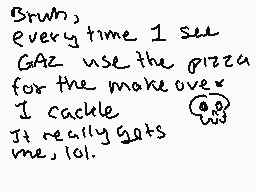 Bruh,
every time I see
GAZ use the pizza
for the makeover
I cackle
It really gets
me, lol.